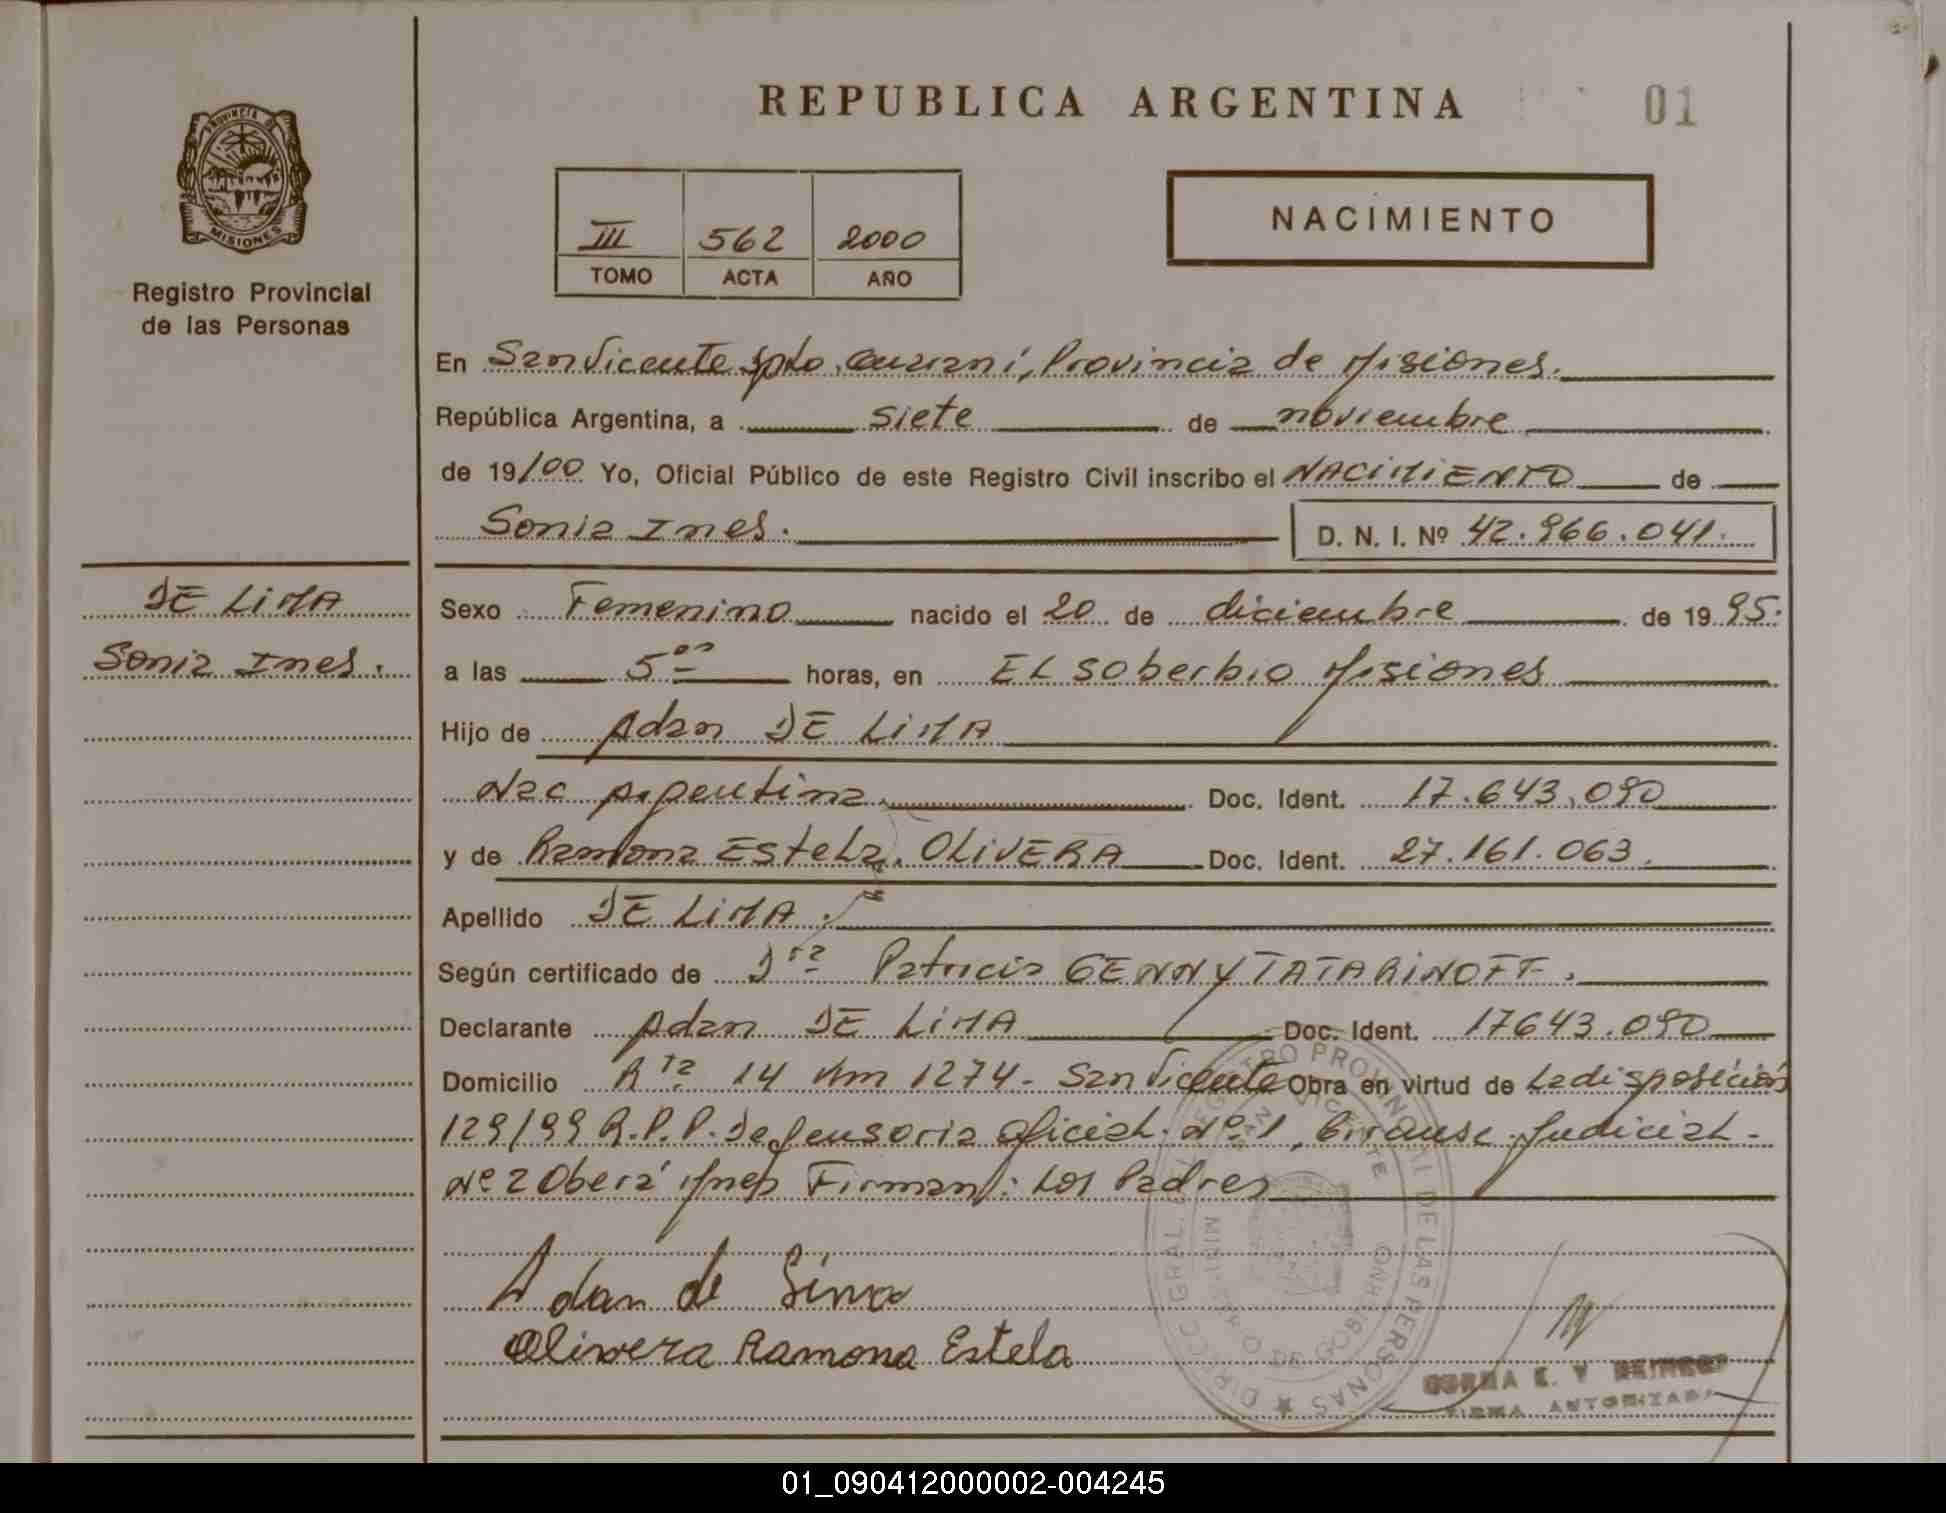 REPUBLICA ARGENTINA
01
PROVINCIA DE
MISIONES
Registro Provincial
de las Personas
III 562 2000
TOMO ACTA AÑO
NACIMIENTO
En San Vicente Dpto. Guarani, Provincia de Misiones.
República Argentina, a siete de noviembre
de 19/00 Yo, Oficial Público de este Registro Civil inscribo el NACIMIENTO de
Sonia Ines.
D. N. I. Nº 42.966.041.
DE LIMA
Sonia Ines.
Sexo Femenino nacido el 20 de diciembre de 19 95.
a las 5 oo horas, en EL Soberbio Misiones
Hijo de Adan DE LIMA
Nac Argentina. Doc. Ident. 17.643.090
y de Ramona Estela. OLIVERA Doc. Ident. 27.161.063.
Apellido DE LIMA.
Según certificado de Dra Patricia GENNY TATARINOFF.
Declarante Adan DE LIMA Doc. Ident. 17643.090
Domicilio Rta 14 Km 1274- San Vicente Obra en virtud de La disposición
129/99 R.P.P. Defensoria Oficial. Nº 1, Judicial-
Nº 2 Oberá Mnes Firman: Los Padres
Adan de Lima
Olivera Ramona Estela
DIRECC. GRAL. DEL REGISTRO PROVINCIAL DE LAS PERSONAS
MINISTERIO DE GOBIERNO
SAN VICENTE
FIRMA AUTORIZADA
01_090412000002-004245